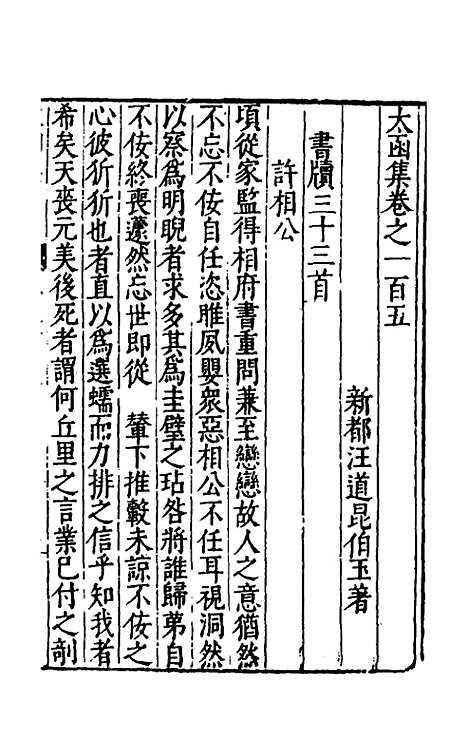 太函集卷之一百五
新都汪道昆伯玉著
書牘三十三首
許相公
頃從家監得相府書重問蒹至戀戀故人之意猶然
不忘不佞自任恣睢夙嬰衆惡相公不任耳視洞然
以察爲明睨者求多其爲圭璧之玷咎將誰歸弟自
不佞終喪邅然忘世即從　輦下推轂未諒不佞之
心彼狺狺也者直以爲選蠕而力排之信乎知我者
希矣天喪元美後死者謂何丘里之言業已付之剞